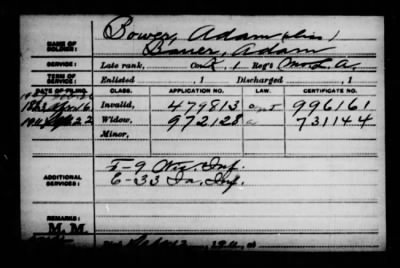 Bower, Adam (alias)
NAME OF SOLDIER: Bauer, Adam
SERVICE: Late rank, Co. K, 1 Reg't Mo. L. A.
TERM OF SERVICE: Enlisted , 1 Discharged , 1
DATE OF FILING. CLASS. APPLICATION NO. LAW. CERTIFICATE NO.
Invalid, 479813 996161
Widow, 972128 731144
Minor,
ADDITIONAL SERVICES: F-9 Wis. Inf.
C-33 Ia. Inf.
REMARKS: M. M.